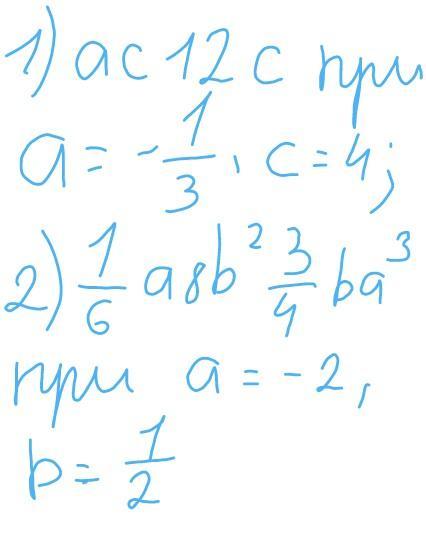 1) ac12c при
a = -1/3, c = 4;
2) 1/6 a8b² 3/4 ba³
при a = -2,
b = 1/2